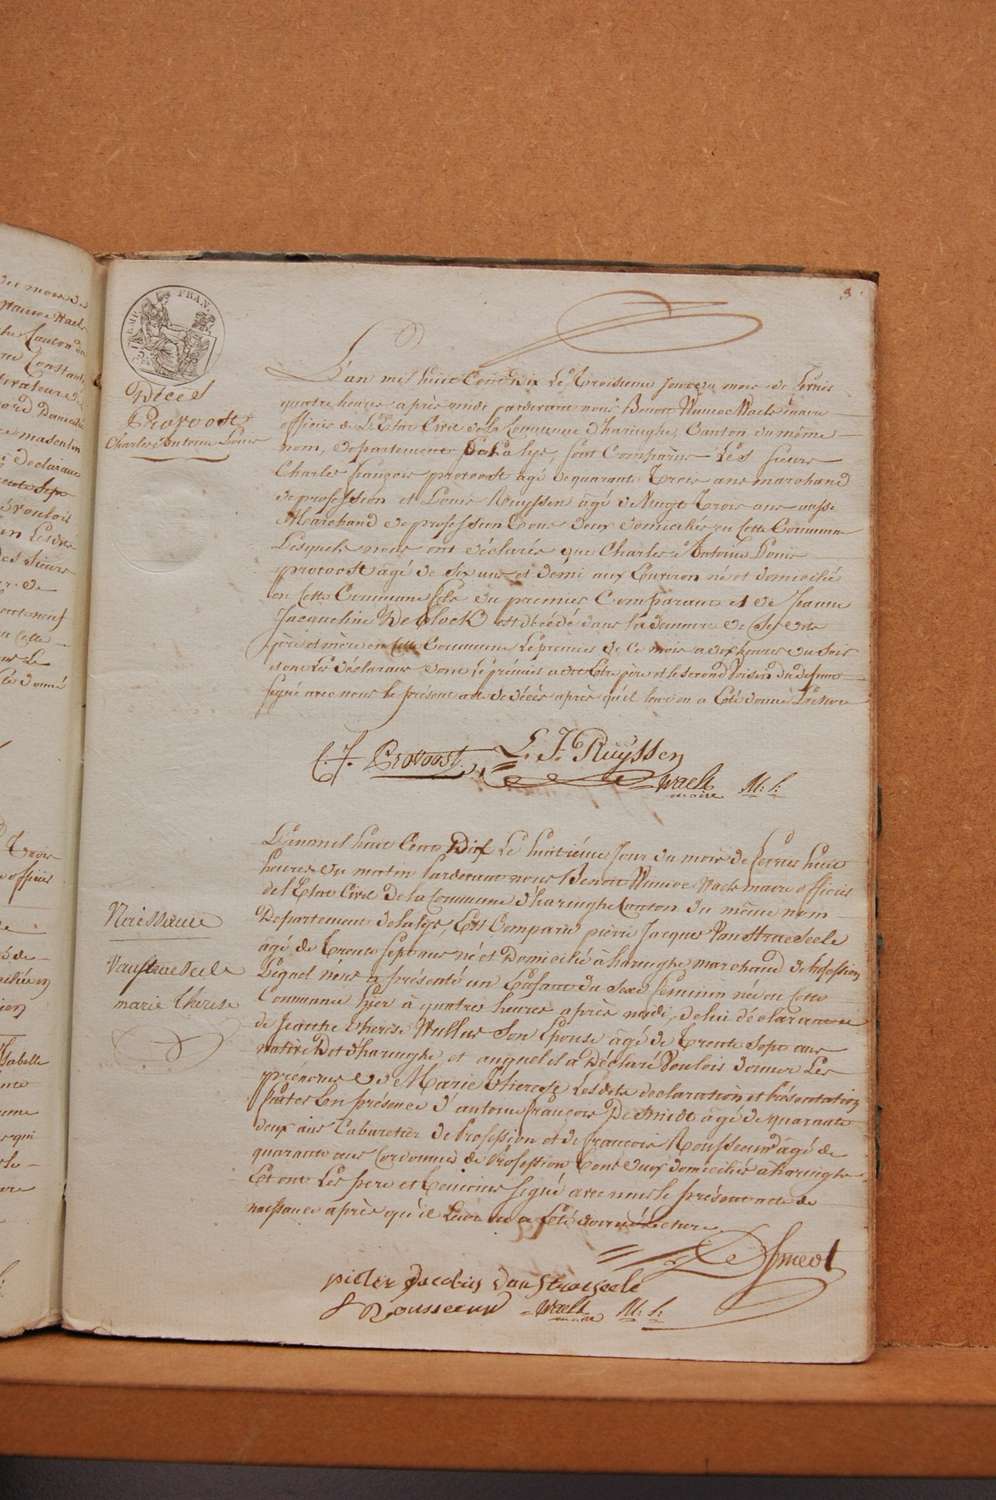 3
EMP. FRAN.
Décès
Provoost
Charles Antoine Louis
L'an mil huit Cent Dix Le Troisieme Jour du mois de fevrier
quatre heures après midi pardevant nous Benoit Winoc Waels maire
officier de L'Etat Civil de la Commune d'haringhe, Canton du même
nom, Departement de la lys, sont Comparus Les sieurs
Charles françois provoost agé de quarante Trois ans marchand
de profession et Louis Ruyssen agé de Vingt Trois ans aussi
Marchand de profession tous deux domiciliés en Cette Commune
Lesquels nous ont déclarés que Charles Antoine Louis
provoost agé de six ans et demi aux Environ né et domicilié
en Cette Commune fils du premier Comparant et de Jeanne
Jacqueline De Block est décédé dans la demeure de ses dits
père et mère en Cette Commune Le premier de Ce mois a dix heures du soir
et ont Les déclarans dont Le premier a dit Etre père et le second Voisin du defunt
signé avec nous le présent acte de décès après qu'il leur en a Eté donné Lecture
C. F. Provoost L. F. Ruyssen
Waels maire
Naissance
Vanstraeseele
marie thérèse
L'an mil huit Cent Dix Le huitième Jour du mois de fevrier huit
heures du matin Pardevant nous Benoit Winoc Waels maire officier
de l'Etat Civil De la Commune d'haringhe Canton du même nom
Departement de la lys Est Comparu pierre Jacques Van Straeseele
agé de Trente sept ans né et Domicilié a haringhe marchand de profession
Lequel nous a présenté un Enfant du sexe feminin né en Cette
Commune hier à quatre heures après midi, de lui déclarant et
de Jeanne Therese Wullus son Epouse agée de Trente Sept ans
native d'haringhe et auquel il a Déclaré Vouloir donner Les
prénoms de Marie Therese Les dits déclaration et présentation
faites en présence d'antoine françois De Smedt agé de quarante
deux ans Cabaretier de Profession et de francois Rousseeuw agé de
quarante ans Cordonnier de Profession tous deux domiciliés a haringhe
Et ont Les père et temoins signé avec nous le présent acte de
naissance après qu'il Leur en a Eté donné Lecture
De Smedt
pieter Jacobus Van Straeseele
f Rousseeuw Waels maire